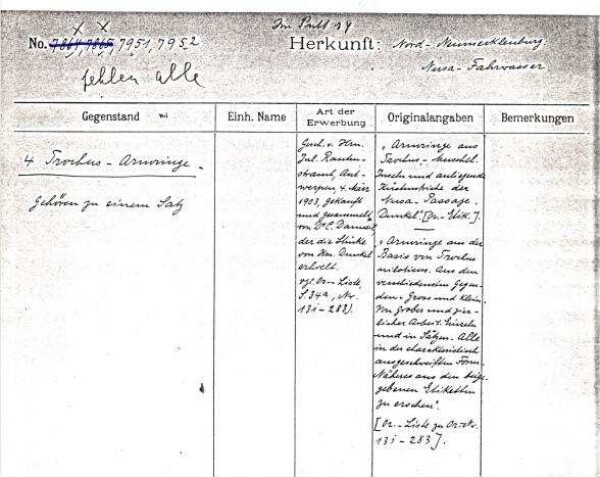 Im Pult 14
No. 7864, 7865, 7951, 7952
Herkunft: Nord-Neumecklenburg
Nusa-Fahrwasser
fehlen alle
Gegenstand
Einh. Name
Art der Erwerbung
Originalangaben
Bemerkungen
4 Trochus-Armringe.
Gehören zu einem Satz
Gesch. v. Hrn.
Jul.
Ant-
werpen, 4. März
1903, gekauft
und gesammelt
von
der die Stücke
von Hrn. Dunkel
erhielt.
vgl. Or-Liste,
S. 34a, Nr.
131-283).
"Armringe aus
Trochus-Muschel.
Inseln und anliegende
Küstenstriche der
Nusa-Passage.
Dunkel." [Or.-Etik.].
"Armringe aus der
Basis von Trochus
niloticus. Aus den
verschiedensten Gegen-
den. Gross und klein.
Von grober und zier-
licher Arbeit. Einzeln
und in Sätzen. Alle
in der charakteristisch
ausgeschweiften Form.
Näheres aus den beige-
gebenen Etiketten
zu ersehen".
[Or.-Liste zu Or-Nr.
131-283].